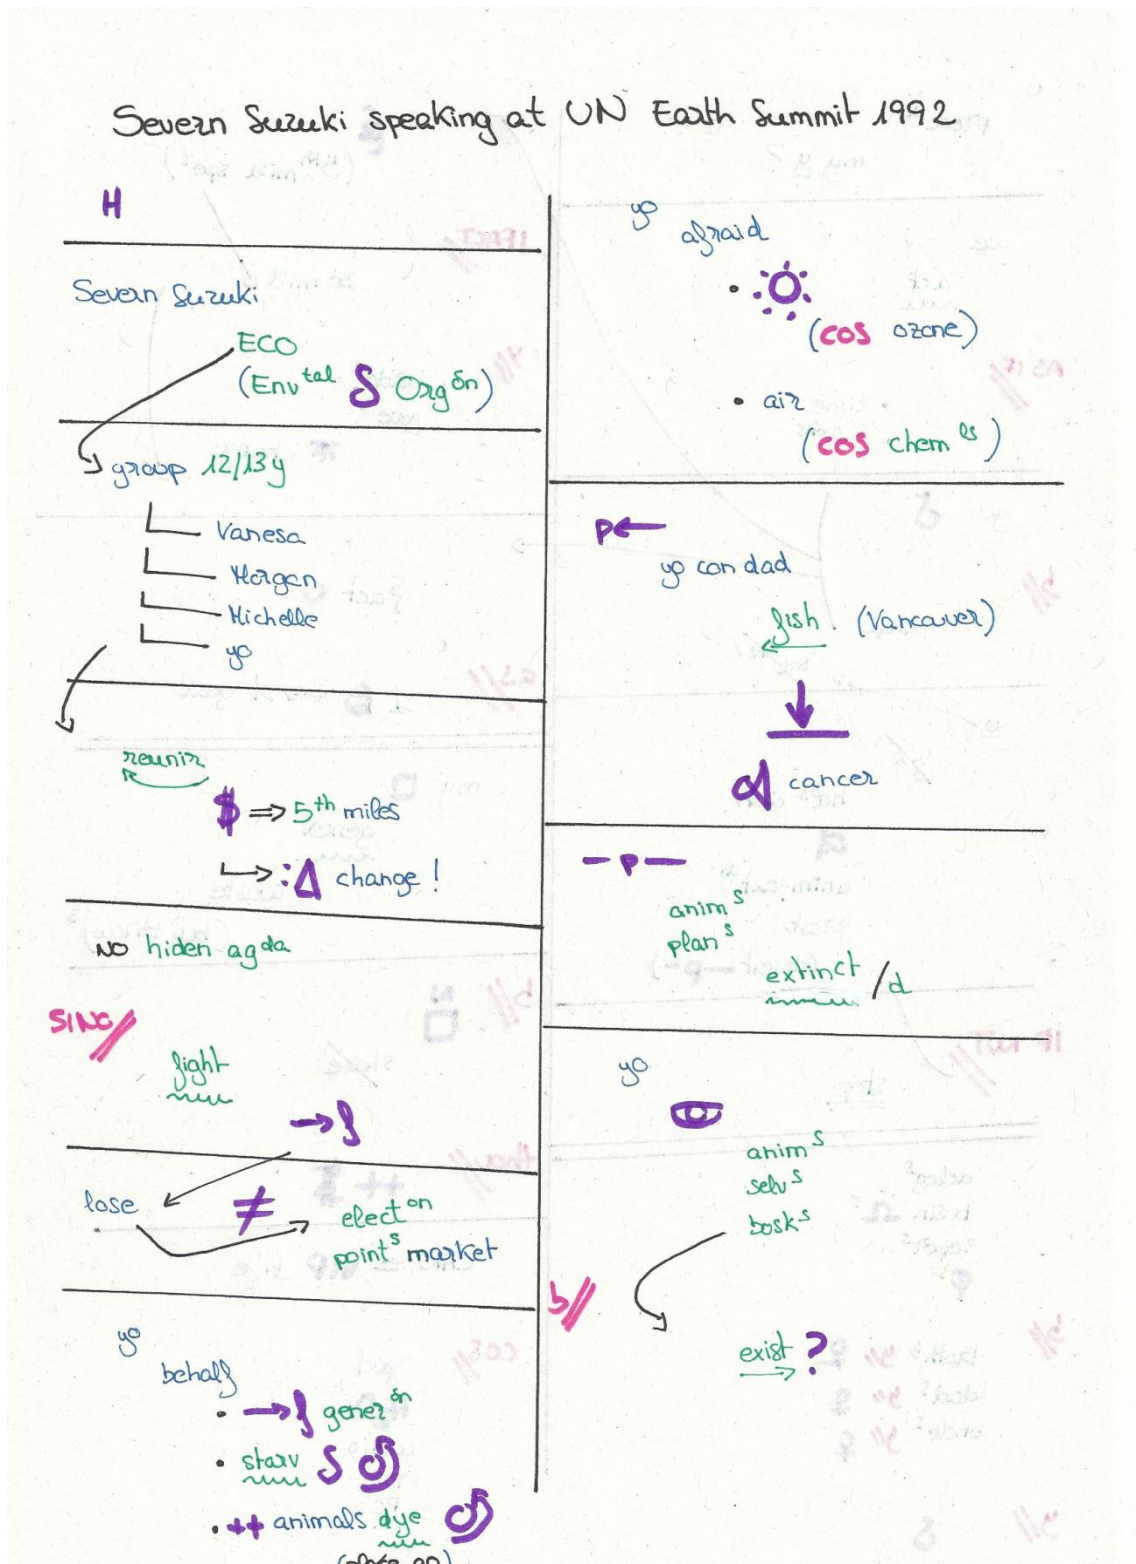 Severn Suzuki speaking at UN Earth Summit 1992
H
Severn Suzuki
ECO
(Env tal S Org ón)
group 12/13 y
Vanesa
Morgan
Michelle
yo
reunir
$ ⇒ 5th miles
:Δ change !
NO hiden ag da
SINO//
fight
→ f
lose ≠ elect on
point s market
yo
behalf
• → f gener ón
• starv S
• ++ animals dye
yo
afraid
•
(cos ozone)
• air
(cos chem ls)
P←
yo con dad
fish (Vancouver)
↓
cancer
— P —
anim s
plan s
extinct /d
yo
anim s
selv s
bosk s
b//
exist ?